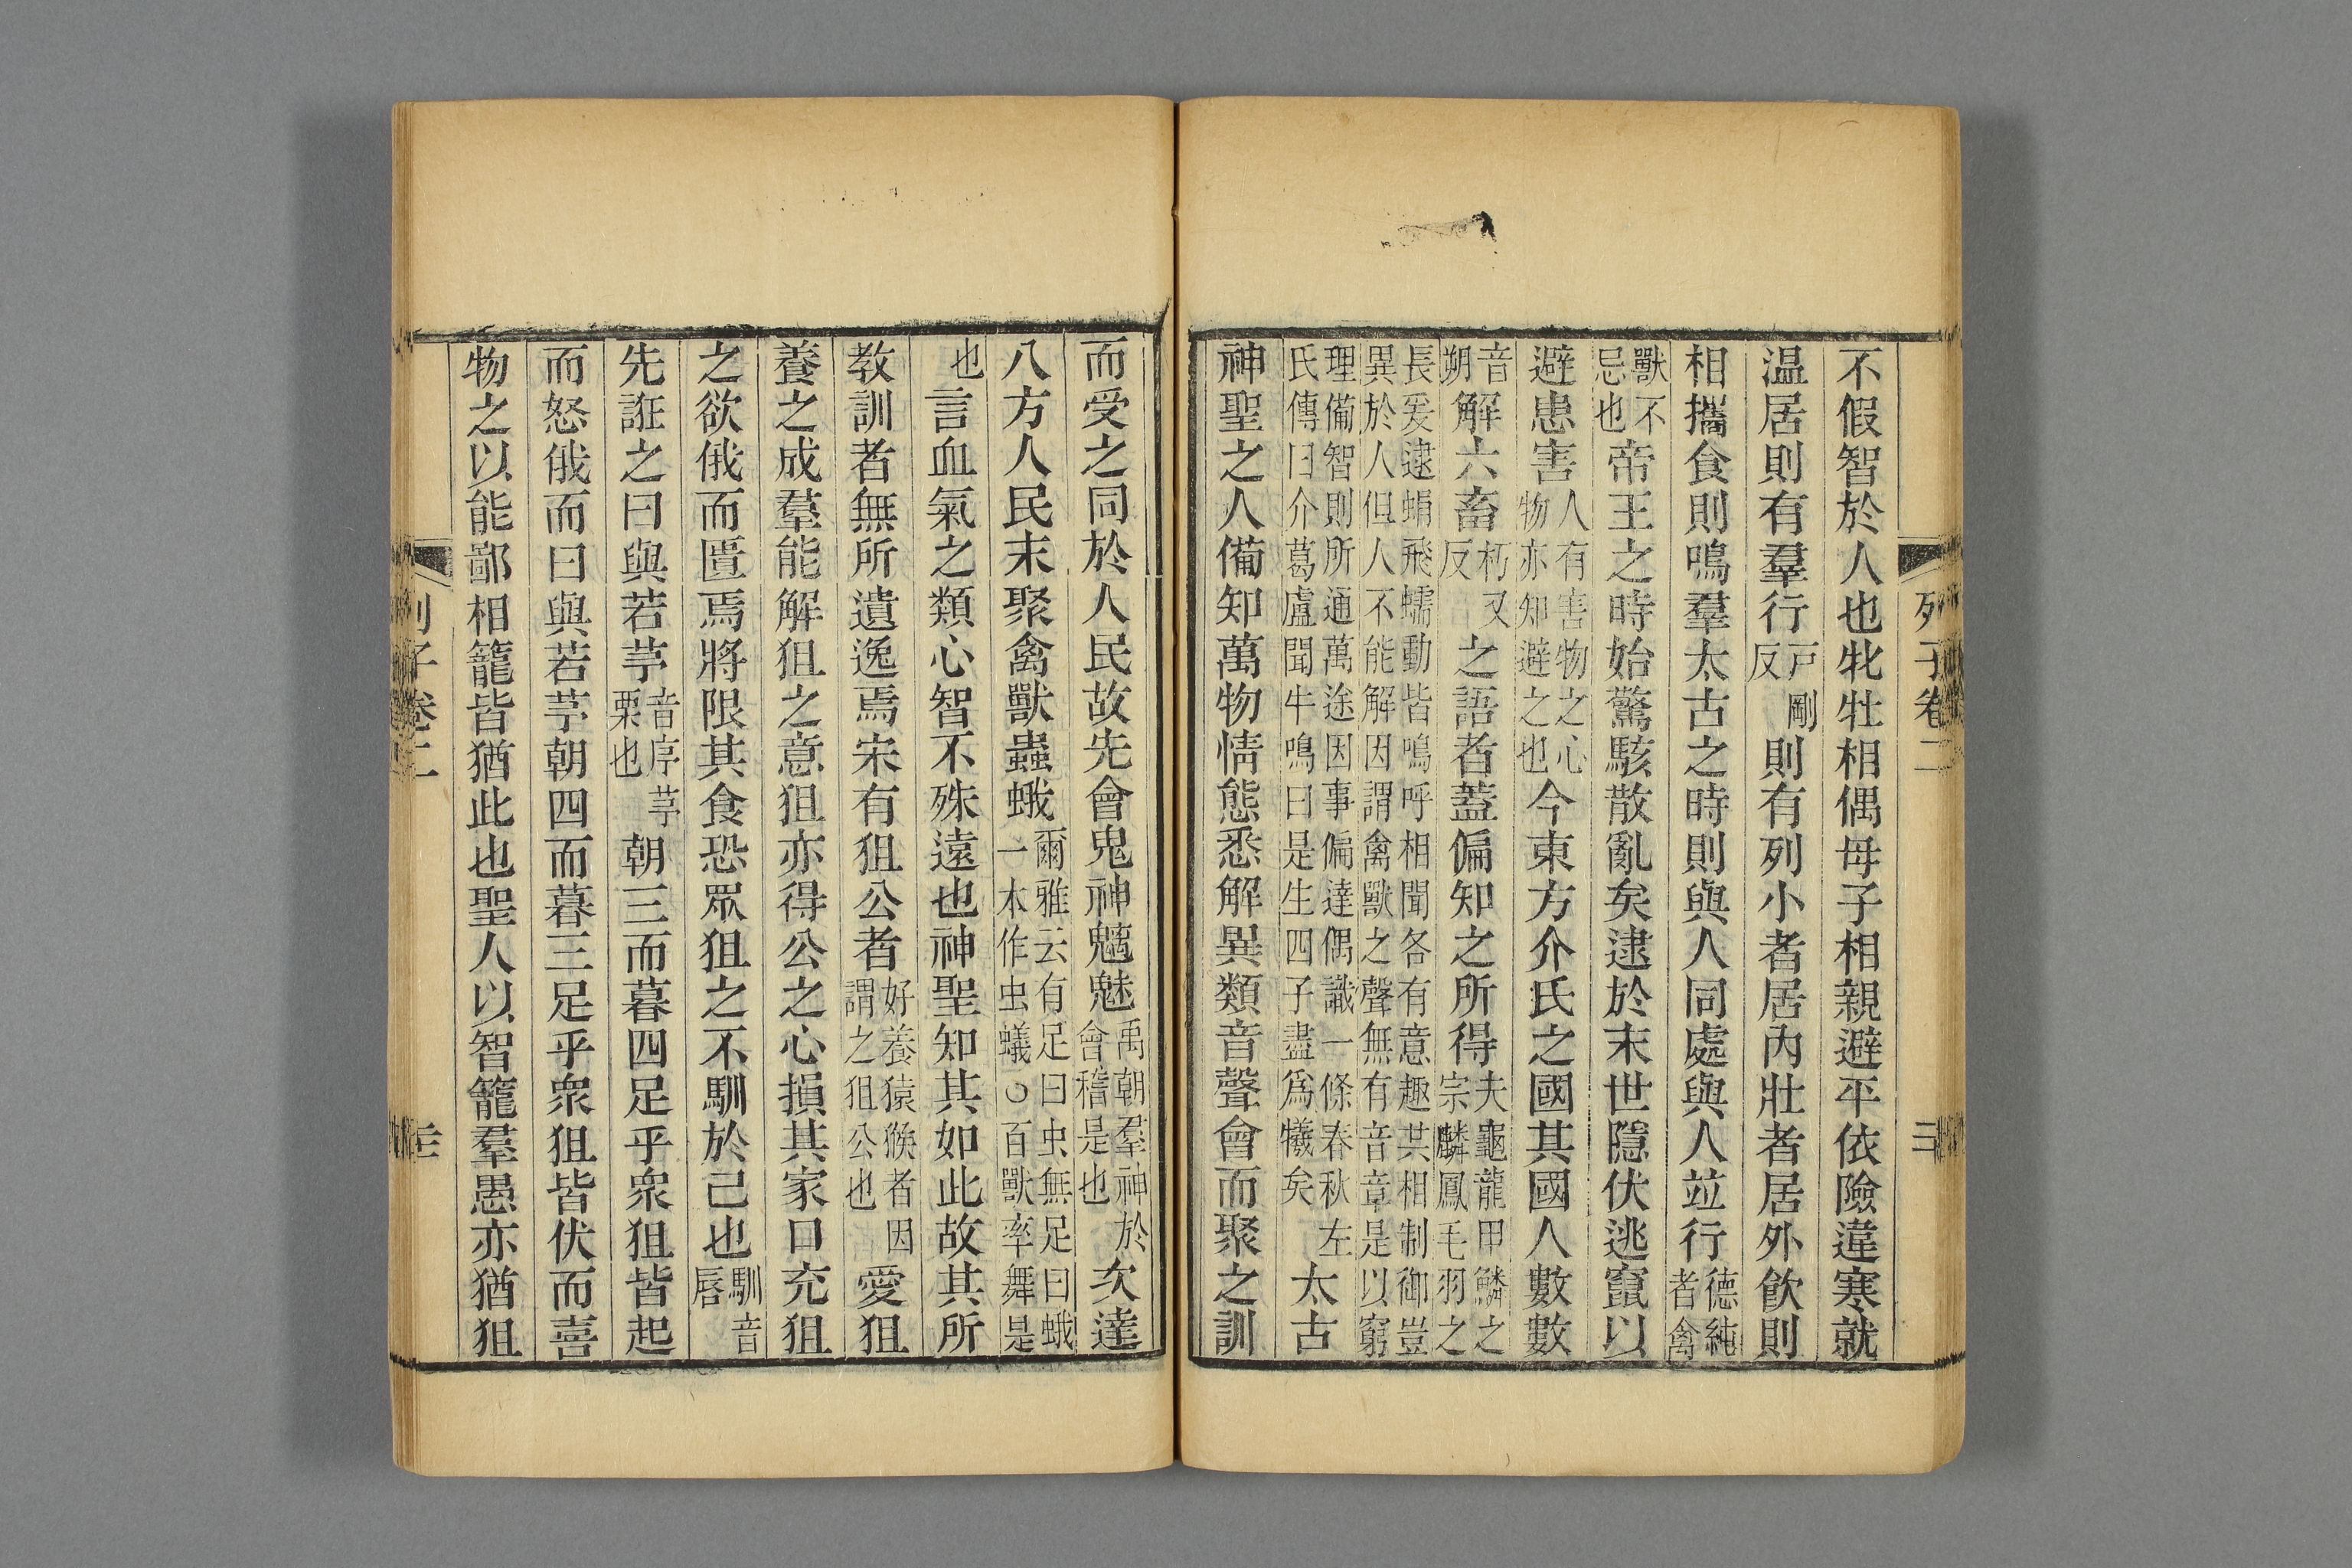 列子卷二
不假智於人也牝牡相偶母子相親避平依險違寒就
温居則有羣行戸剛反則有列小者居內壯者居外飲則
相攜食則鳴羣太古之時則與人同處與人竝行德純者禽
獸不忌也帝王之時始驚駭散亂矣逮於末世隱伏逃竄以
避患害人有害物之心物亦知避之也今東方介氏之國其國人數數
音朔解六畜朽又反之語者蓋偏知之所得夫龜龍甲鱗之宗麟鳳毛羽之
長爰逮蜎飛蠕動皆鳴呼相聞各有意趣共相制御豈異於人但人不能解因謂禽獸之聲無有音章是以窮
理備智則所通萬途因事偏達偶識一條春秋左氏傳曰介葛盧聞牛鳴曰是生四子盡爲犧矣太古
神聖之人備知萬物情態悉解異類音聲會而聚之訓
而受之同於人民故先會鬼神魑魅禹朝羣神於會稽是也次達
八方人民末聚禽獸蟲蛾爾雅云有足曰虫無足曰蛾一本作虫蟻○百獸率舞是
也言血氣之類心智不殊遠也神聖知其如此故其所
教訓者無所遺逸焉宋有狙公者好養猿猴者因謂之狙公也愛狙
養之成羣能解狙之意狙亦得公之心損其家口充狙
之欲俄而匱焉將限其食恐眾狙之不馴於己也馴音唇
先誑之曰與若芧音序芧栗也朝三而暮四足乎衆狙皆起
而怒俄而曰與若芧朝四而暮三足乎衆狙皆伏而喜
物之以能鄙相籠皆猶此也聖人以智籠羣愚亦猶狙
列子卷二